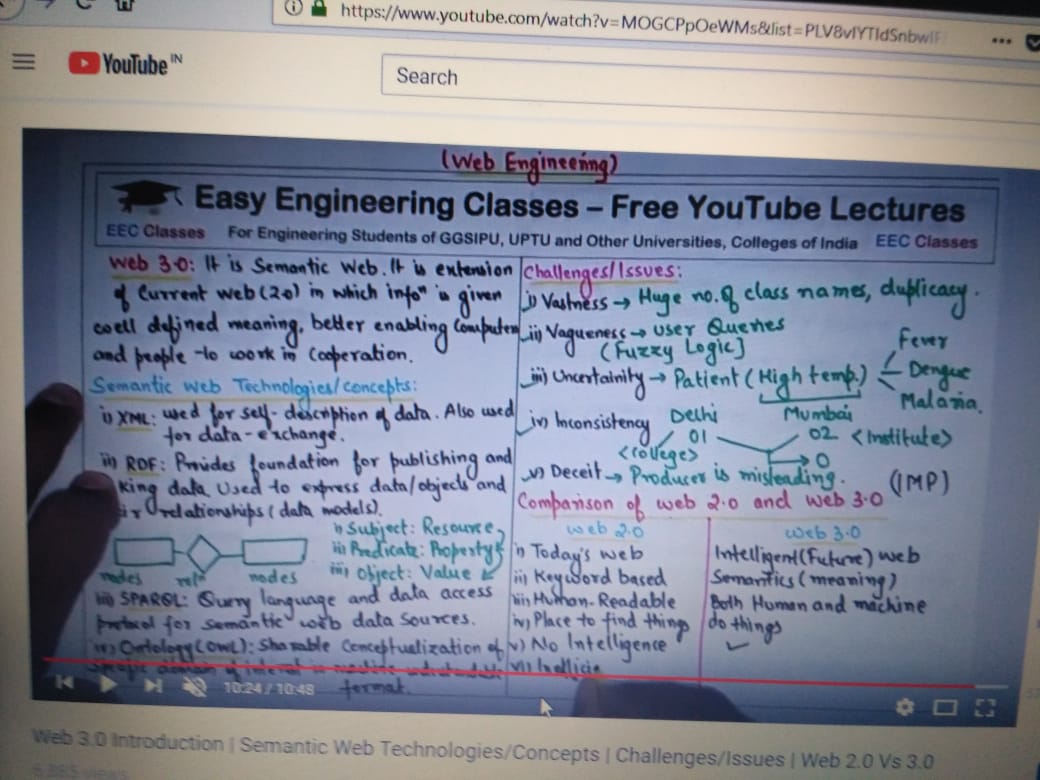 https://www.youtube.com/watch?v=MOGCPpOeWMs&list=PLV8vIYTIdSnbwIF
YouTube IN
Search
(Web Engineering)
Easy Engineering Classes – Free YouTube Lectures
EEC Classes For Engineering Students of GGSIPU, UPTU and Other Universities, Colleges of India EEC Classes
Web 3.0: It is Semantic Web. It is extension
of Current web (2.0) in which infoⁿ is given
well defined meaning, better enabling Computer
and people to work in Cooperation.
Semantic Web Technologies/concepts:
i) XML: used for self-description of data. Also used
for data-exchange.
ii) RDF: Provides foundation for publishing and
king data. Used to express data/objects and
ir relationships (data models).
i) Subject: Resource
ii) Predicate: Property
iii) Object: Value
nodes relⁿ nodes
iii) SPARQL: Query language and data access
protocol for semantic web data sources.
iv) Ontology (OWL): Sharable Conceptualization of
format.
Challenges/Issues:
i) Vastness → Huge no. of class names, duplicacy.
ii) Vagueness → user Queries
(Fuzzy Logic]
iii) Uncertainity → Patient (High temp.)
Fever
Dengue
Malaria.
iv) Inconsistency
Delhi Mumbai
01 02 <Institute>
<College>
0
v) Deceit → Producer is misleading.
(IMP)
Comparison of web 2.0 and web 3.0
web 2.0
i) Today's web
ii) Keyword based
iii) Human-Readable
iv) Place to find things
v) No Intelligence
web 3.0
Intelligent (Future) web
Semantics (meaning)
Both Human and machine
do things
10:24 / 10:48
Web 3.0 Introduction | Semantic Web Technologies/Concepts | Challenges/Issues | Web 2.0 Vs 3.0
views